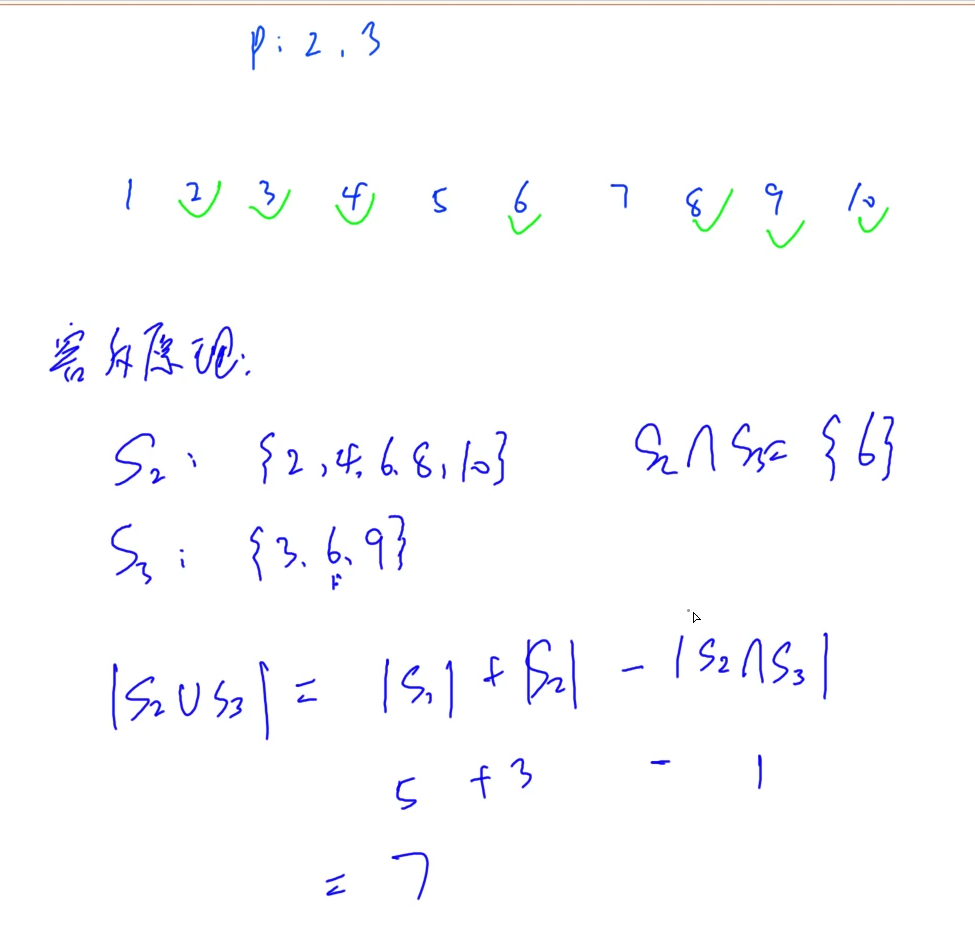 p: 2, 3
1 2 3 4 5 6 7 8 9 10
容斥原理:
S₂: {2, 4, 6, 8, 10} S₂∩S₃= {6}
S₃: {3, 6, 9}
|S₂∪S₃| = |S₁| + |S₂| - |S₂∩S₃|
5 + 3 - 1
= 7